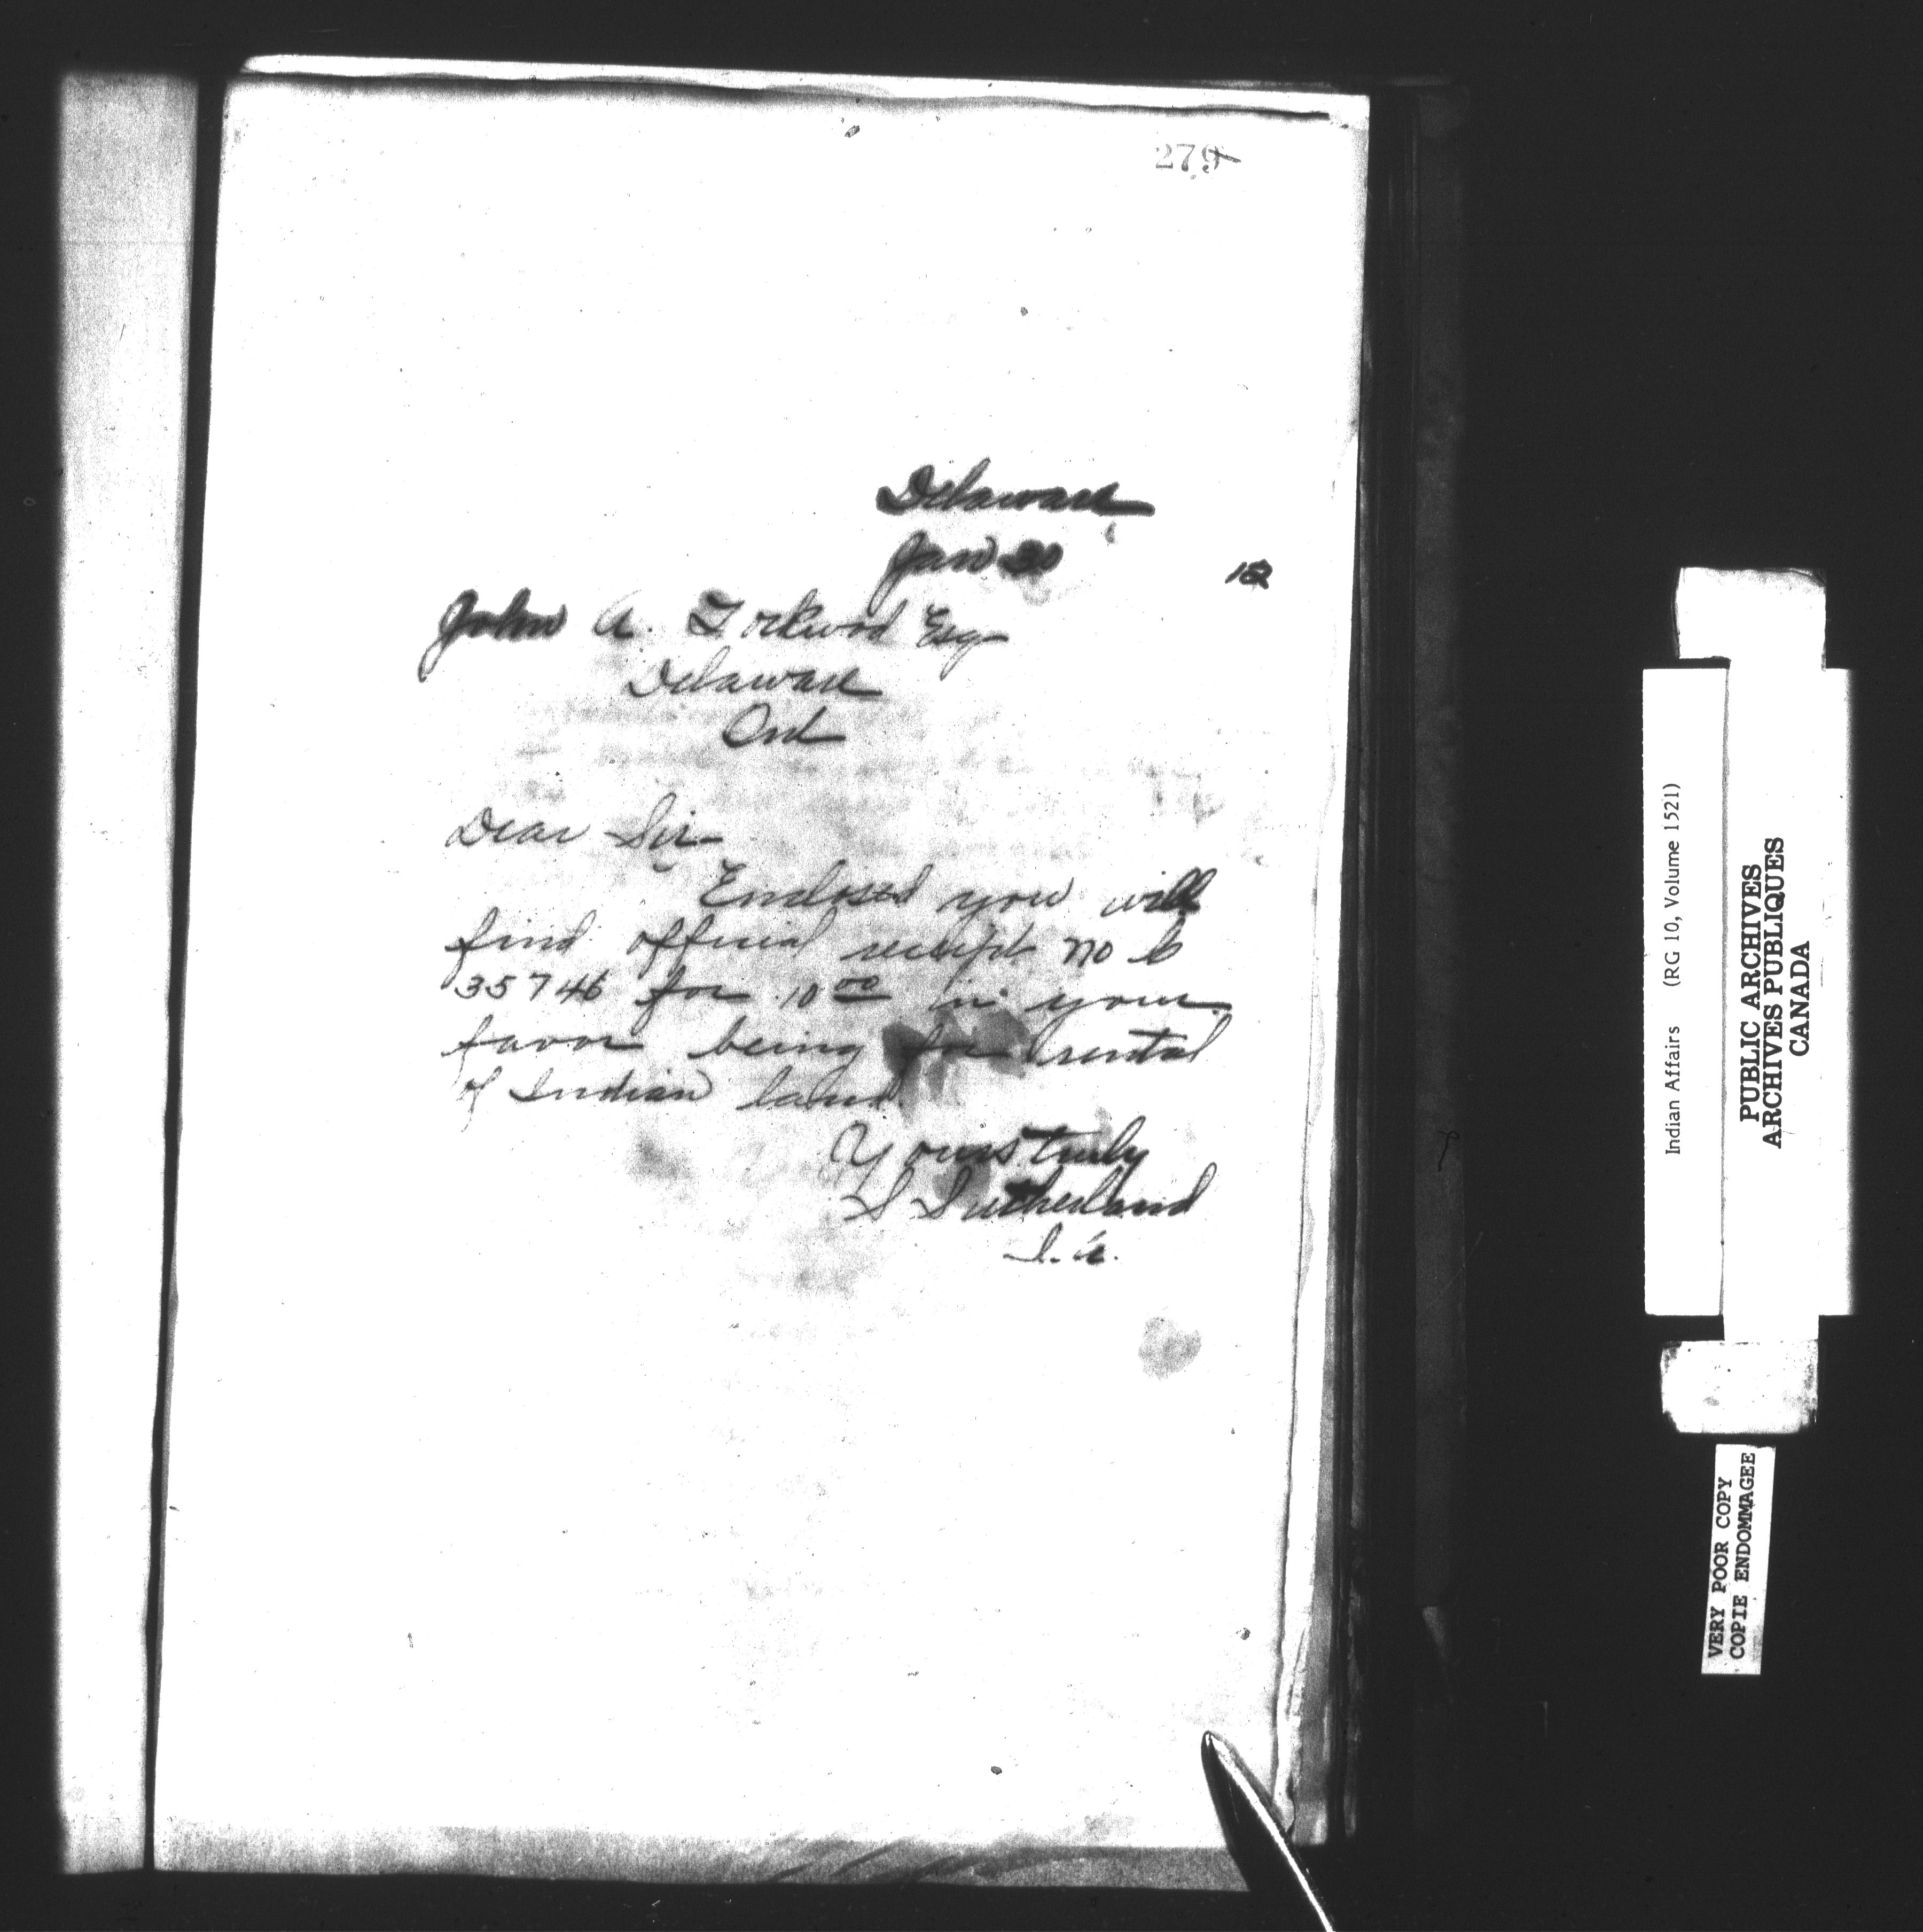 279
Delaware
Jan 30
12
John A. Lockwood Esq
Delaware
Ont
Dear Sir
Enclosed you will
find official receipt no
35746 for 10 00 in your
favor being for rental
of Indian land.
Yours truly
S Sutherland
I. A.
Indian Affairs (RG 10, Volume 1521)
PUBLIC ARCHIVES
ARCHIVES PUBLIQUES
CANADA
VERY POOR COPY
COPIE ENDOMMAGEE